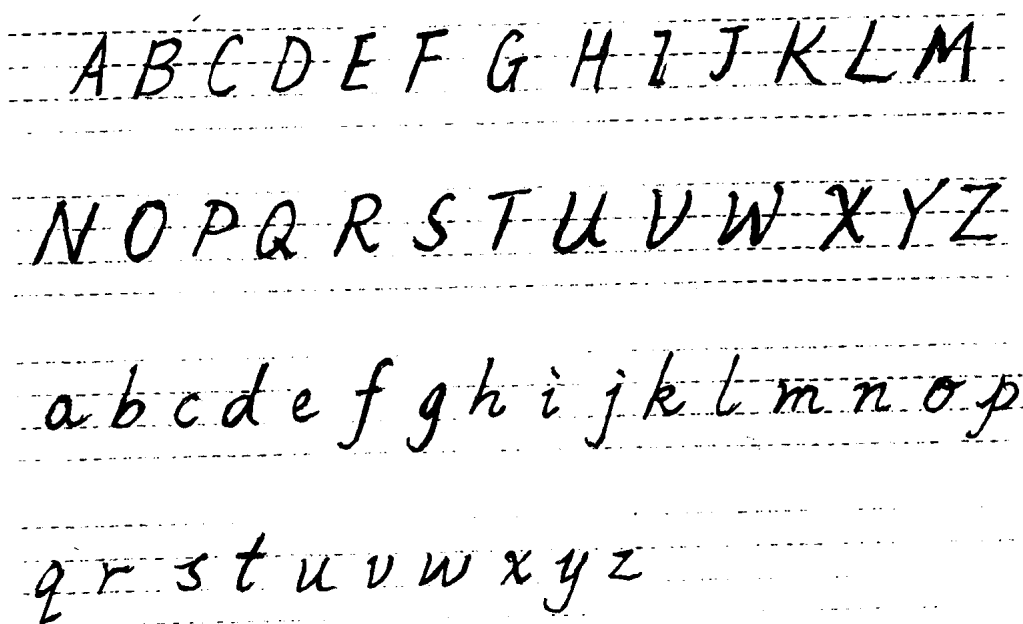 A B C D E F G H I J K L M
N O P Q R S T U V W X Y Z
a b c d e f g h i j k l m n o p
q r s t u v w x y z